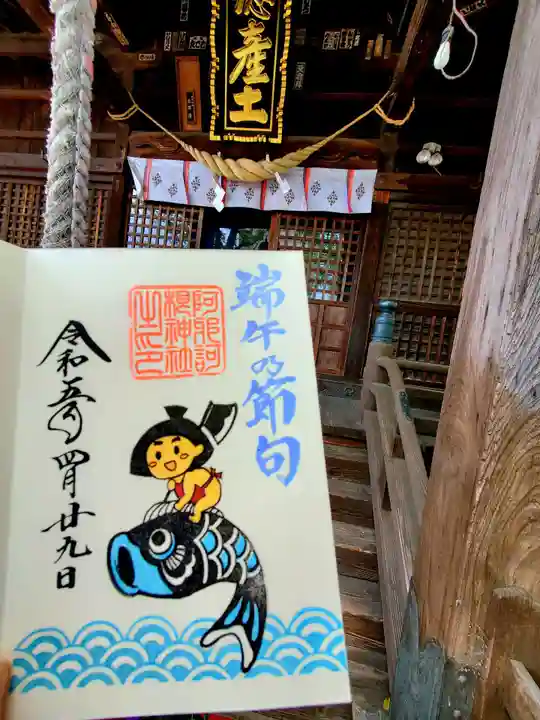 産土
端午の節句
阿那訶
根神社
之印
令和五年
四月廿九日